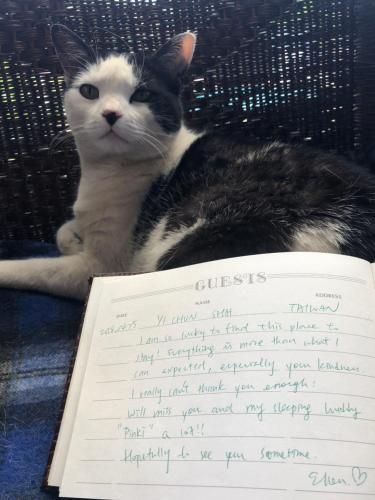 GUESTS
DATE NAME ADDRESS
YI CHUN SHIH TAIWAN
I am so lucky to find this place to
stay! Everything is more than what I
can expected, especially your kindness
I really can't thank you enough!
Will miss you and my sleeping buddy
"Pinki" a lot!!
Hopefully to see you sometime.
Ellen ♡